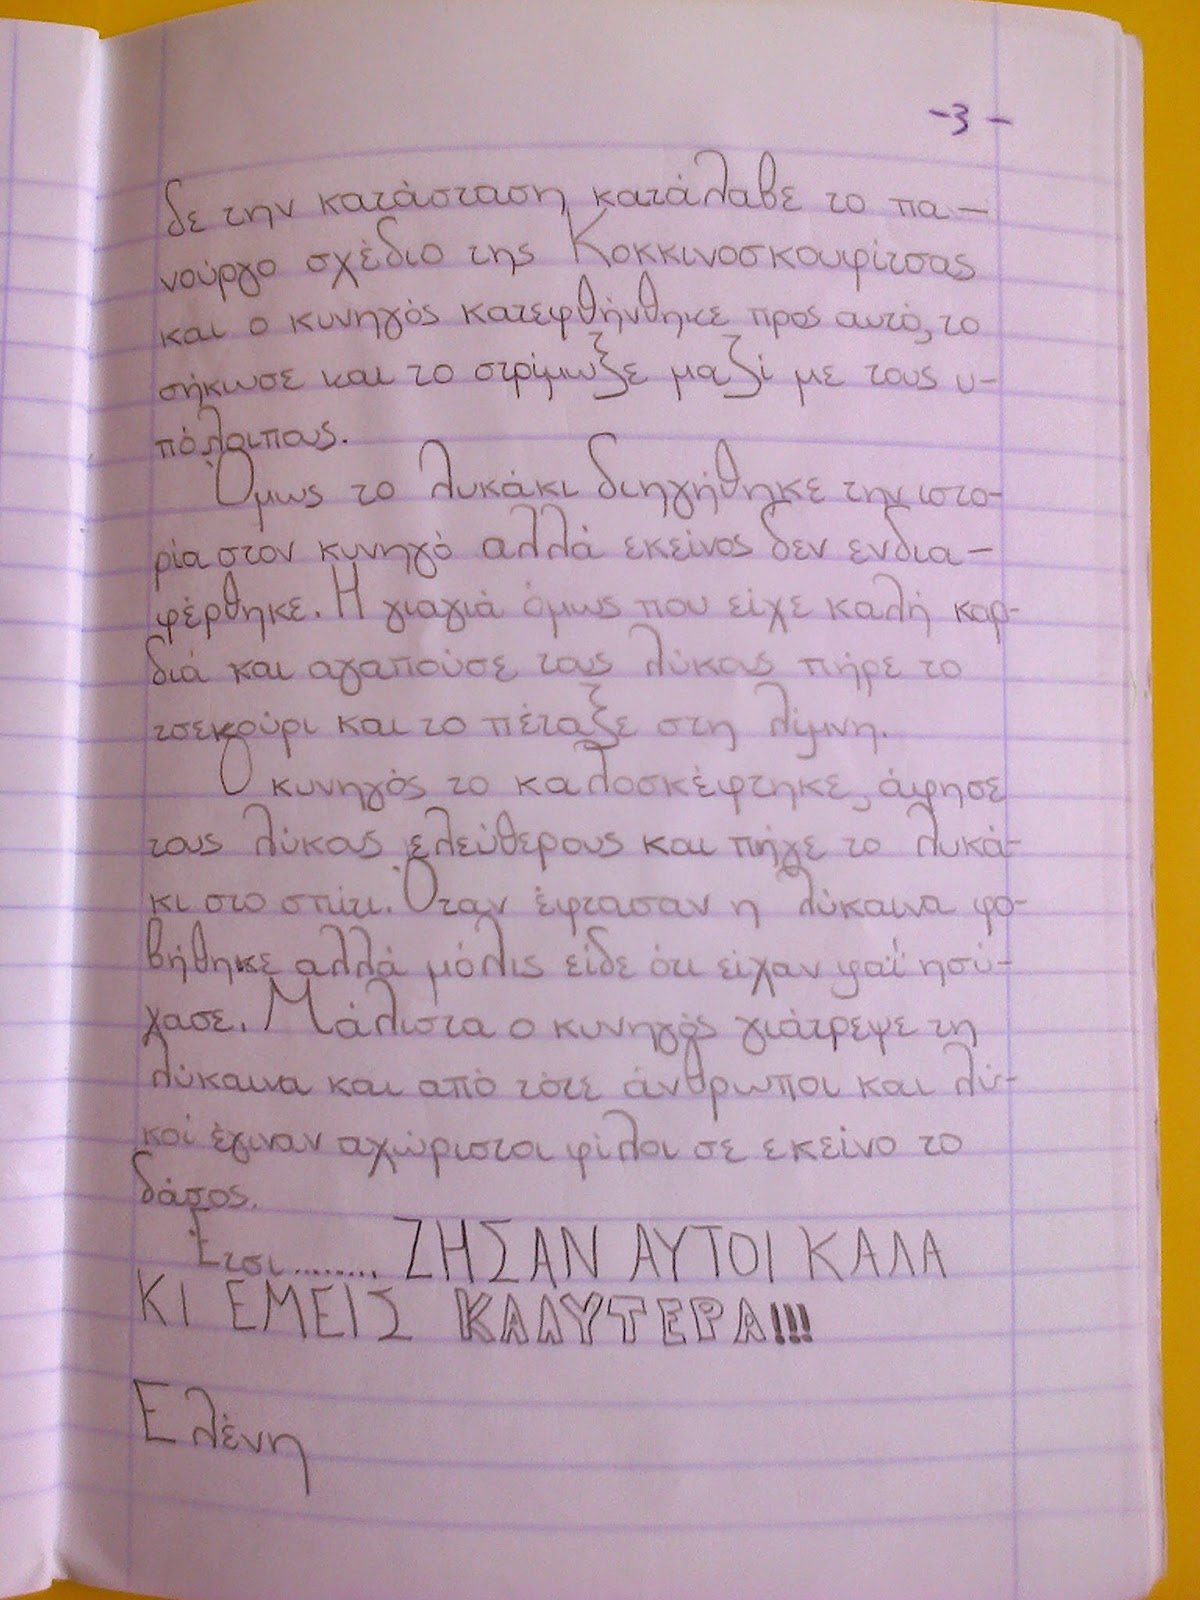 -3-
δε την κατάσταση κατάλαβε το πα-
νούργο σχέδιο της Κοκκινοσκουφίτσας
και ο κυνηγός κατεφθήνθηκε προς αυτό, το
σήκωσε και το στρίμωξε μαζί με τους υ-
πόλοιπους.
Όμως το λυκάκι διηγήθηκε την ιστο-
ρία στον κυνηγό αλλά εκείνος δεν ενδια-
φέρθηκε. Η γιαγιά όμως που είχε καλή καρ-
διά και αγαπούσε τους λύκους πήρε το
τσεκούρι και το πέταξε στη λίμνη.
Ο κυνηγός το καλοσκέφτηκε, άφησε
τους λύκους ελεύθερους και πήγε το λυκά-
κι στο σπίτι. Όταν έφτασαν η λύκαινα φο-
βήθηκε αλλά μόλις είδε ότι είχαν φαΐ ησύ-
χασε. Μάλιστα ο κυνηγός γιάτρεψε τη
λύκαινα και από τότε άνθρωποι και λύ-
κοι έγιναν αχώριστοι φίλοι σε εκείνο το
δάσος.
Έτσι........ ΖΗΣΑΝ ΑΥΤΟΙ ΚΑΛΑ
ΚΙ ΕΜΕΙΣ ΚΑΛΥΤΕΡΑ!!!
Ελένη